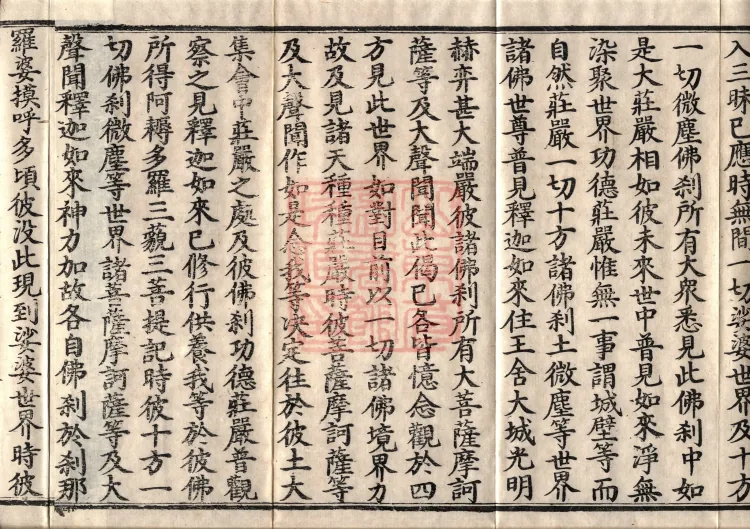 入三昧已應時無間一切娑婆世界及十方
一切微塵佛刹所有大衆悉見此佛刹中如
是大莊嚴相如彼未來世中普見如來淨無
染聚世界功德莊嚴惟無一事謂城壁等而
自然莊嚴一切十方諸佛刹土微塵等世界
諸佛世尊普見釋迦如來住王舍大城光明
赫弈甚大端嚴彼諸佛刹所有大菩薩摩訶
薩等及大聲聞聞此偈已各皆憶念觀於四
方見此世界如對目前以一切諸佛境界力
故及見諸天種種莊嚴時彼菩薩摩訶薩等
及大聲聞作如是念我等決定往於彼土大
集會中莊嚴之處及彼佛刹功德莊嚴普觀
察之見釋迦如來已修行供養我等於彼佛
所得阿耨多羅三藐三菩提記時彼十方一
切佛刹微塵等世界諸菩薩摩訶薩等及大
聲聞釋迦如來神力加故各自佛刹於刹那
羅婆摸呼多頃彼没此現到娑婆世界時彼